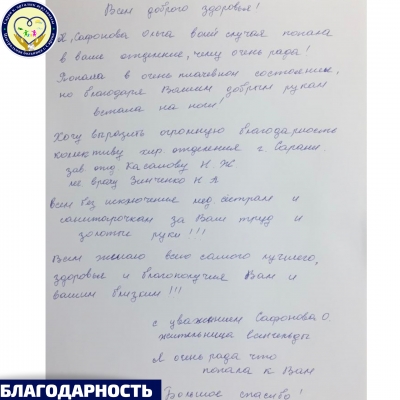 Всем доброго здоровья!
Я, Сафонова Ольга волей случая попала
в ваше отделение, чему очень рада!
Попала в очень плачевном состоянии,
но благодаря Вашим добрым рукам
встала на ноги!
Хочу выразить огромную благодарность
коллективу хир. отделения г. Сарани.
зав отд Касамову Н Ж
врачу Зинченко Н А
всем без исключения мед сёстрам и
санитарочкам за Ваш труд и
золотые руки!!!
Всем желаю всего самого лучшего,
здоровья и благополучия Вам и
вашим близким!!!
с уважением Сафонова О
жительница
Я очень рада что
попала к Вам
Большое спасибо!
БЛАГОДАРНОСТЬ